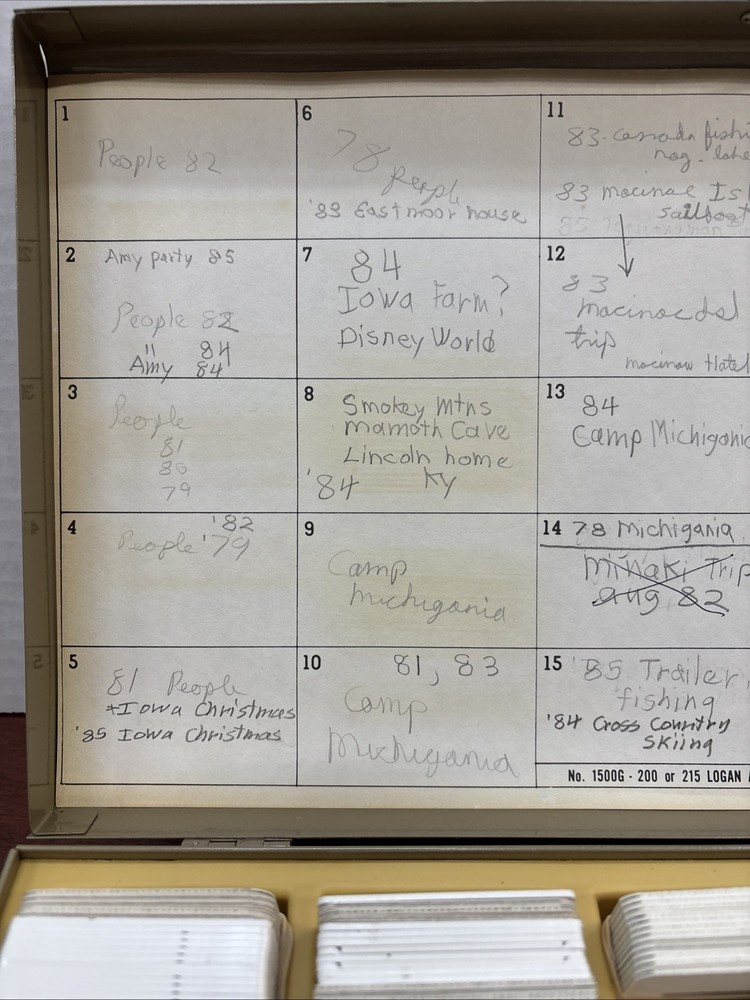 1
People 82
2
Amy party 85
People 82
" 84
Amy 84
3
People
81
80
79
4
'82
People '79
5
81 People
+Iowa Christmas
'85 Iowa Christmas
6
78
People
'83 Eastmoor house
7
84
Iowa Farm?
Disney World
8
Smokey Mtns
mamoth Cave
Lincoln home
'84 Ky
9
Camp
Michigania
10
81, 83
Camp
Michigania
11
83 - canada fishi
nag. lake
83 macinac Is
sailboat
85
12
83
macinac
trip
macinaw Hotel
13
84
Camp Michigania
14 78 Michigania
Minaki Trip
aug 82
15 '85 Trailer
fishing
'84 Cross Country
Skiing
No. 1500G - 200 or 215 LOGAN